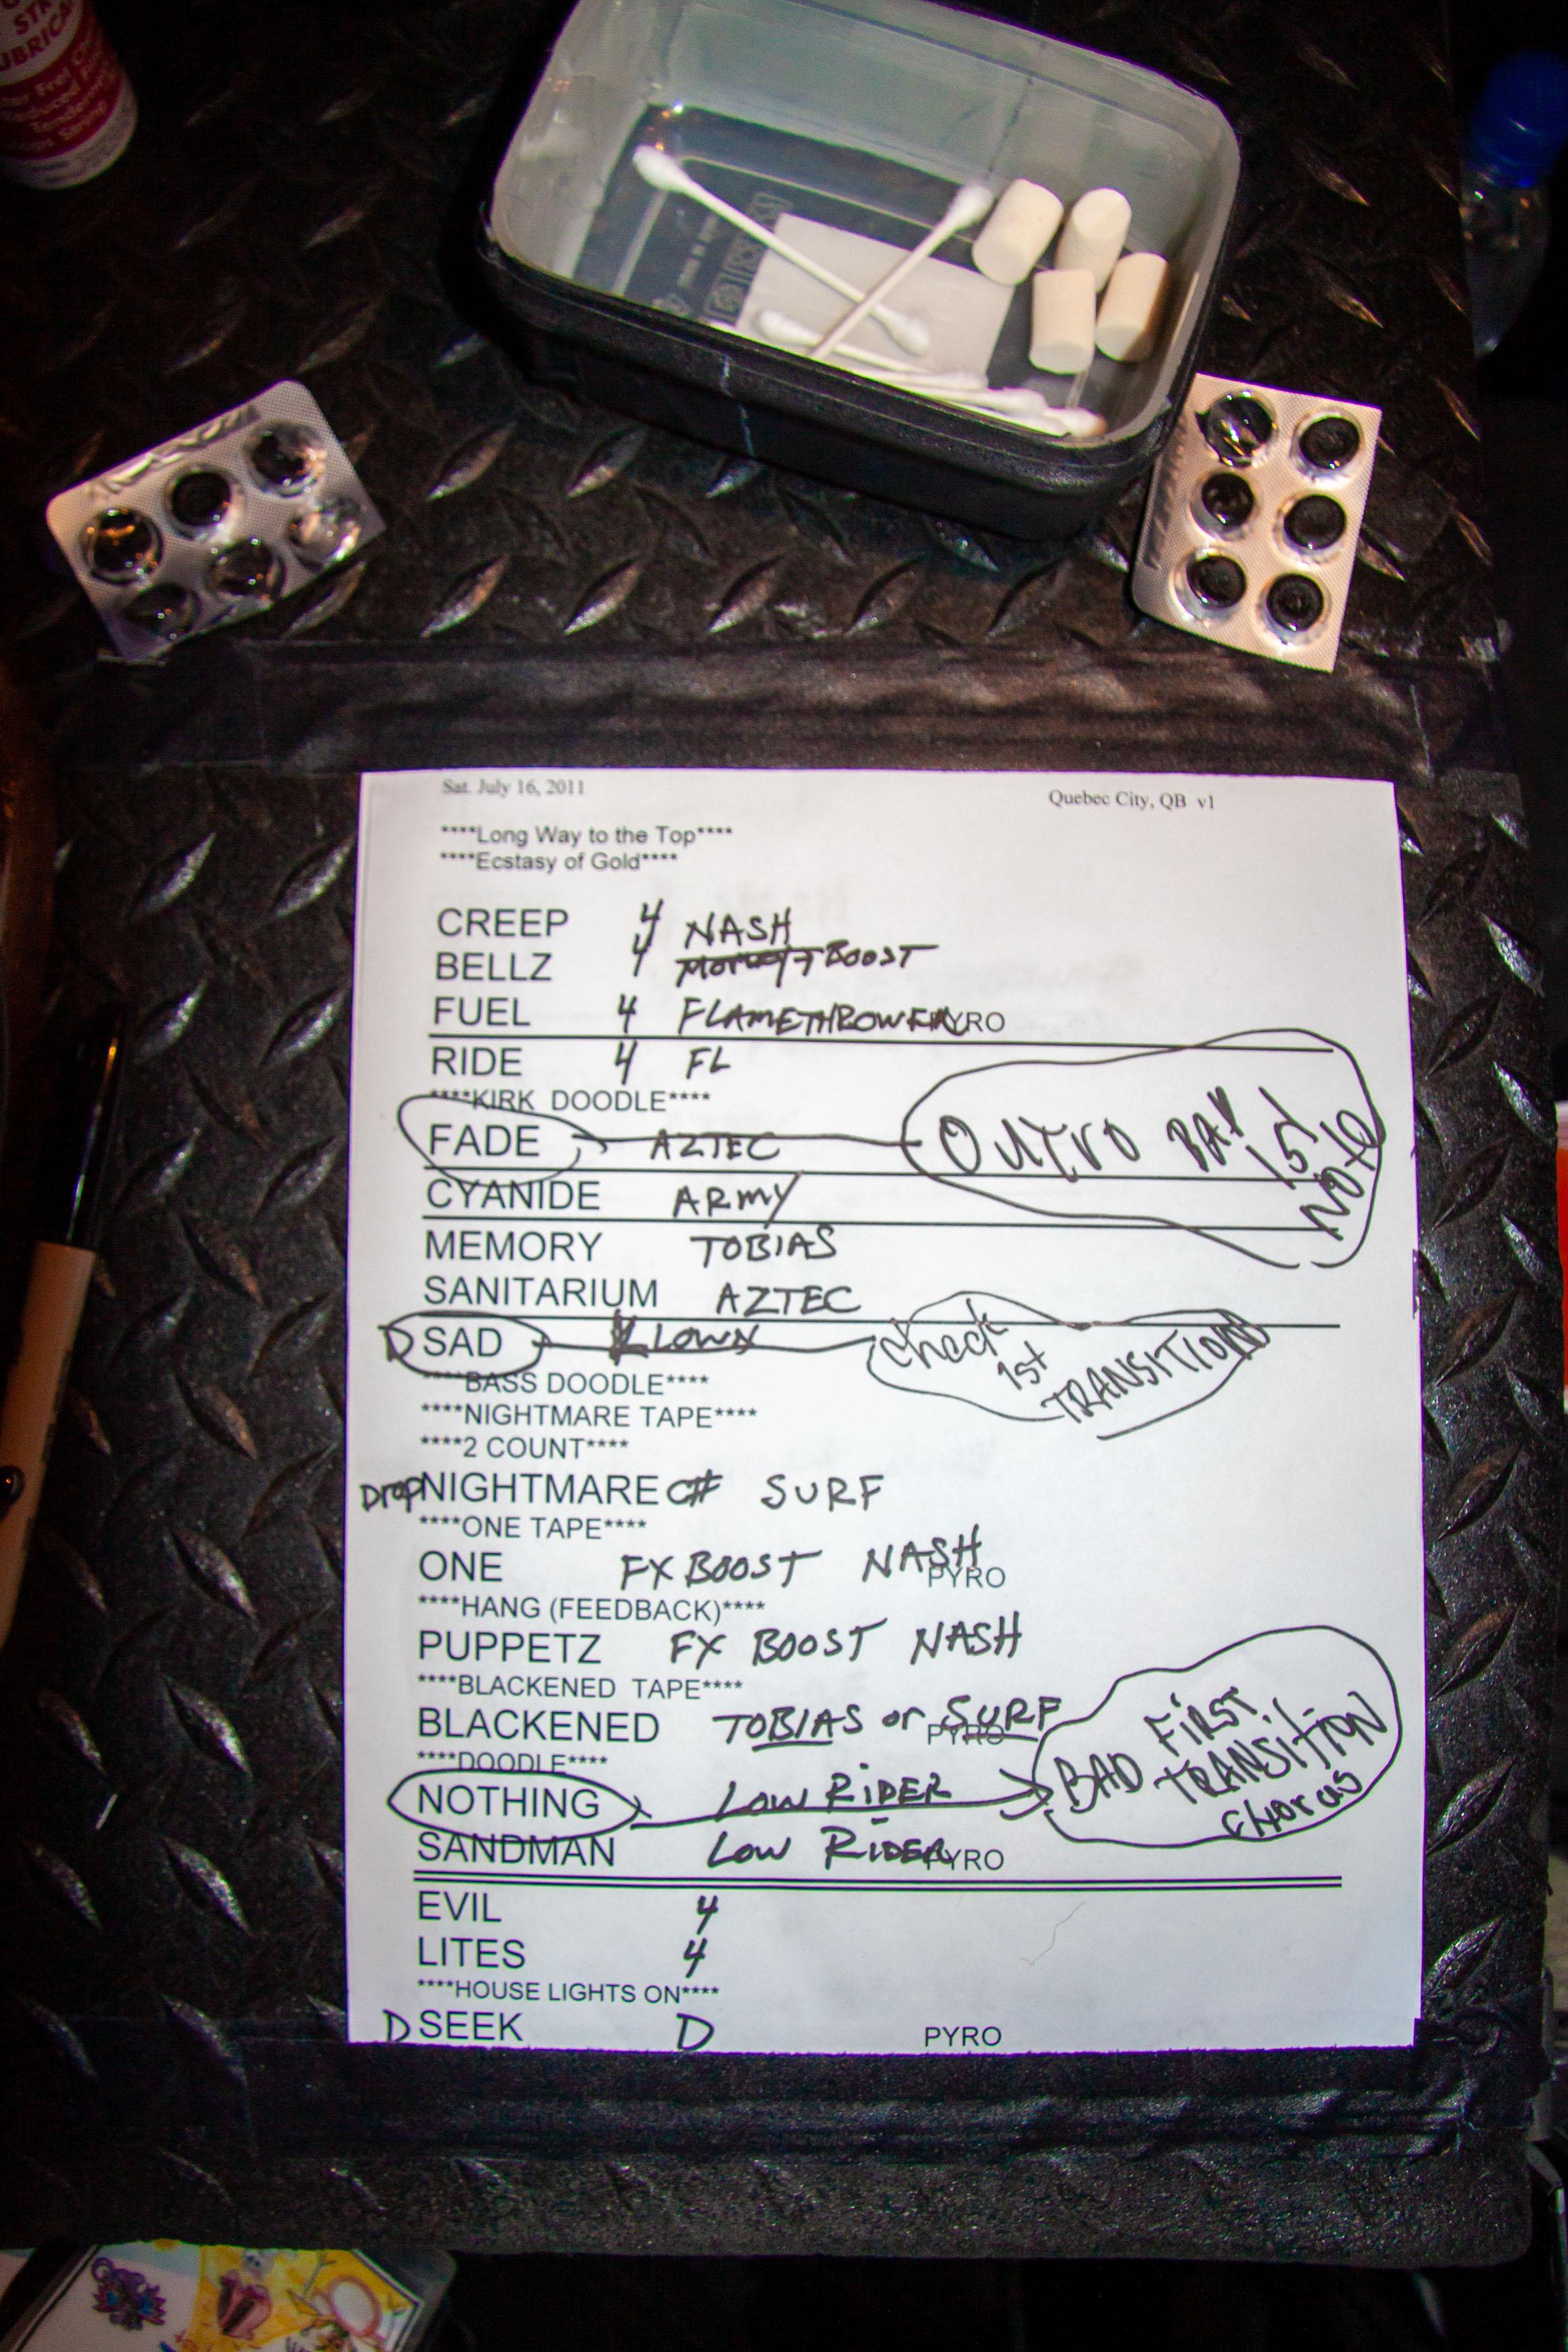 STA
UBRICA
Reduced F
Tendering
Sat. July 16, 2011
Quebec City, QB v1
****Long Way to the Top****
****Ecstasy of Gold****
CREEP 4 NASH
BELLZ 4 BOOST
FUEL 4 FLAMETHROWER PYRO
RIDE 4 FL
****KIRK DOODLE****
FADE AZTEC OUTRO BAR 1st NOTE
CYANIDE ARMY
MEMORY TOBIAS
SANITARIUM AZTEC
D SAD KLOWN check 1st TRANSITION
****BASS DOODLE****
****NIGHTMARE TAPE****
****2 COUNT****
Drop NIGHTMARE C# SURF
****ONE TAPE****
ONE FX BOOST NASH PYRO
****HANG (FEEDBACK)****
PUPPETZ FX BOOST NASH
****BLACKENED TAPE****
BLACKENED TOBIAS or SURF PYRO
****DOODLE****
NOTHING LOW RIDER BAD FIRST TRANSITION chorus
SANDMAN LOW RIDER PYRO
EVIL 4
LITES 4
****HOUSE LIGHTS ON****
D SEEK D PYRO